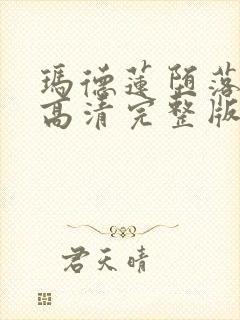 瑪德蓮堕落
高清完整版
君天晴